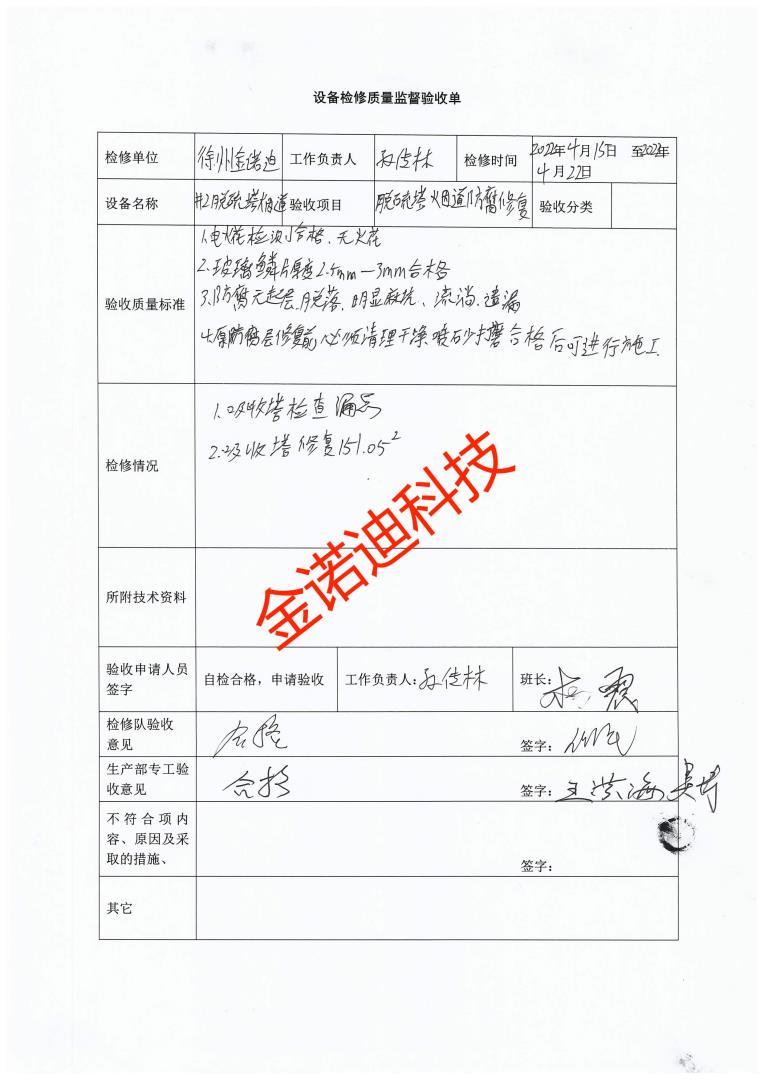 设备检修质量监督验收单
检修单位 徐州金诺迪 工作负责人 孙传林 检修时间 2022年4月15日 至2022年4月22日
设备名称 #2脱硫塔烟道 验收项目 脱硫塔烟道防腐修复 验收分类
验收质量标准
1.电火花检测合格、无火花
2.玻璃鳞片厚度2.5mm—3mm合格
3.防腐无起层、脱落、明显麻坑、流淌、遗漏
4.原防腐层修复前必须清理干净喷砂打磨合格后可进行施工
检修情况
1.吸收塔检查漏点
2.吸收塔修复151.05²
金诺迪科技
所附技术资料
验收申请人员
签字
自检合格，申请验收 工作负责人：孙传林 班长：
检修队验收
意见
合格 签字：
生产部专工验
收意见
合格 签字：王洪海
不符合项内
容、原因及采
取的措施、
签字：
其它